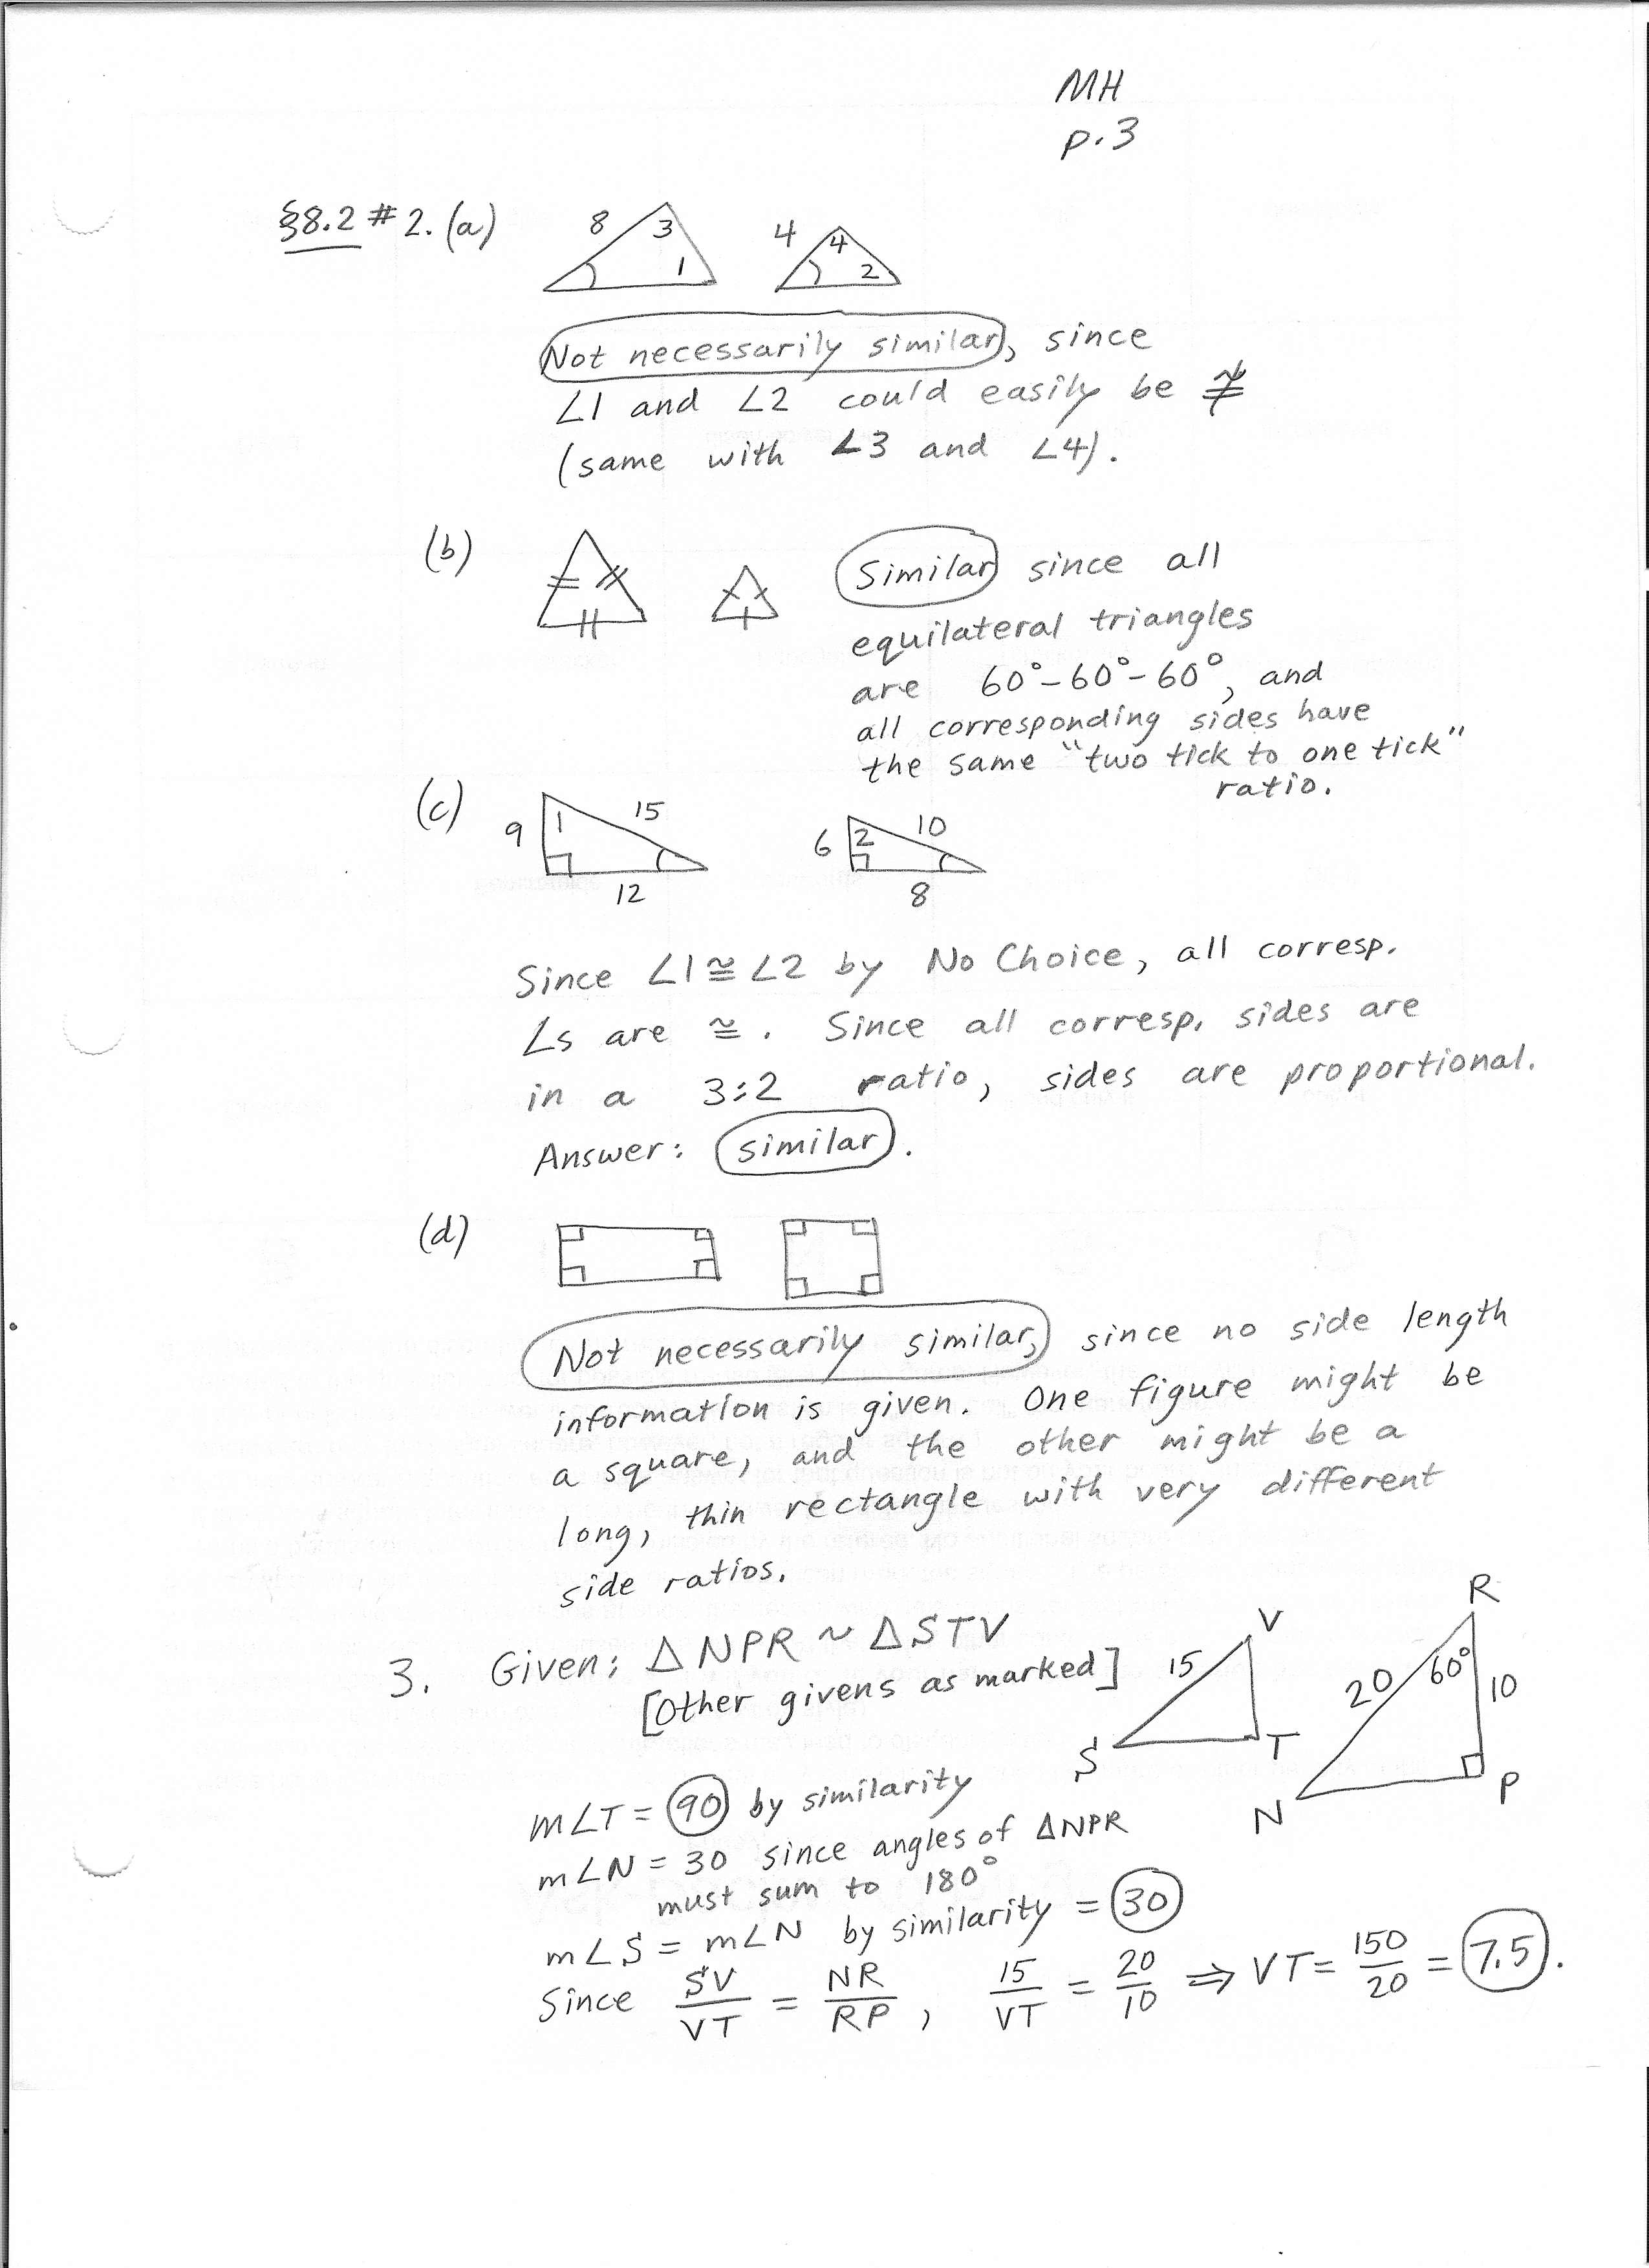 MH
p.3
§8.2 # 2. (a)
8 3 1
4 4 2
Not necessarily similar, since
∠1 and ∠2 could easily be ≇
(same with ∠3 and ∠4).
(b)
Similar since all
equilateral triangles
are 60°-60°-60°, and
all corresponding sides have
the same "two tick to one tick"
ratio.
(c)
9 1 15 12
6 2 10 8
Since ∠1 ≅ ∠2 by No Choice, all corresp.
∠s are ≅. Since all corresp. sides are
in a 3:2 ratio, sides are proportional.
Answer: similar.
(d)
Not necessarily similar, since no side length
information is given. One figure might be
a square, and the other might be a
long, thin rectangle with very different
side ratios.
3. Given: △NPR ~ △STV
[Other givens as marked]
V 15 S T
R 20 60° 10 N P
m∠T = 90 by similarity
m∠N = 30 since angles of △NPR
must sum to 180°
m∠S = m∠N by similarity = 30
Since SV/VT = NR/RP, 15/VT = 20/10 ⇒ VT = 150/20 = 7.5.